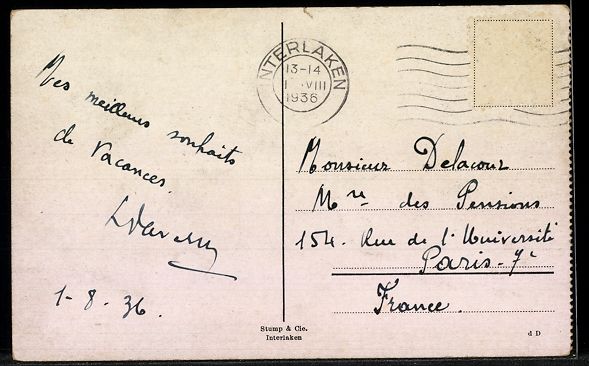 Mes meilleurs souhaits
de Vacances.
1-8.36.
INTERLAKEN
13-14
VIII
1936
Monsieur Delacour
Mre des Pensions
154. Rue de l'Université
Paris-7e
France.
Stump & Cie.
Interlaken
d D